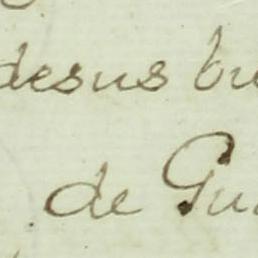 desus bu
de Gu